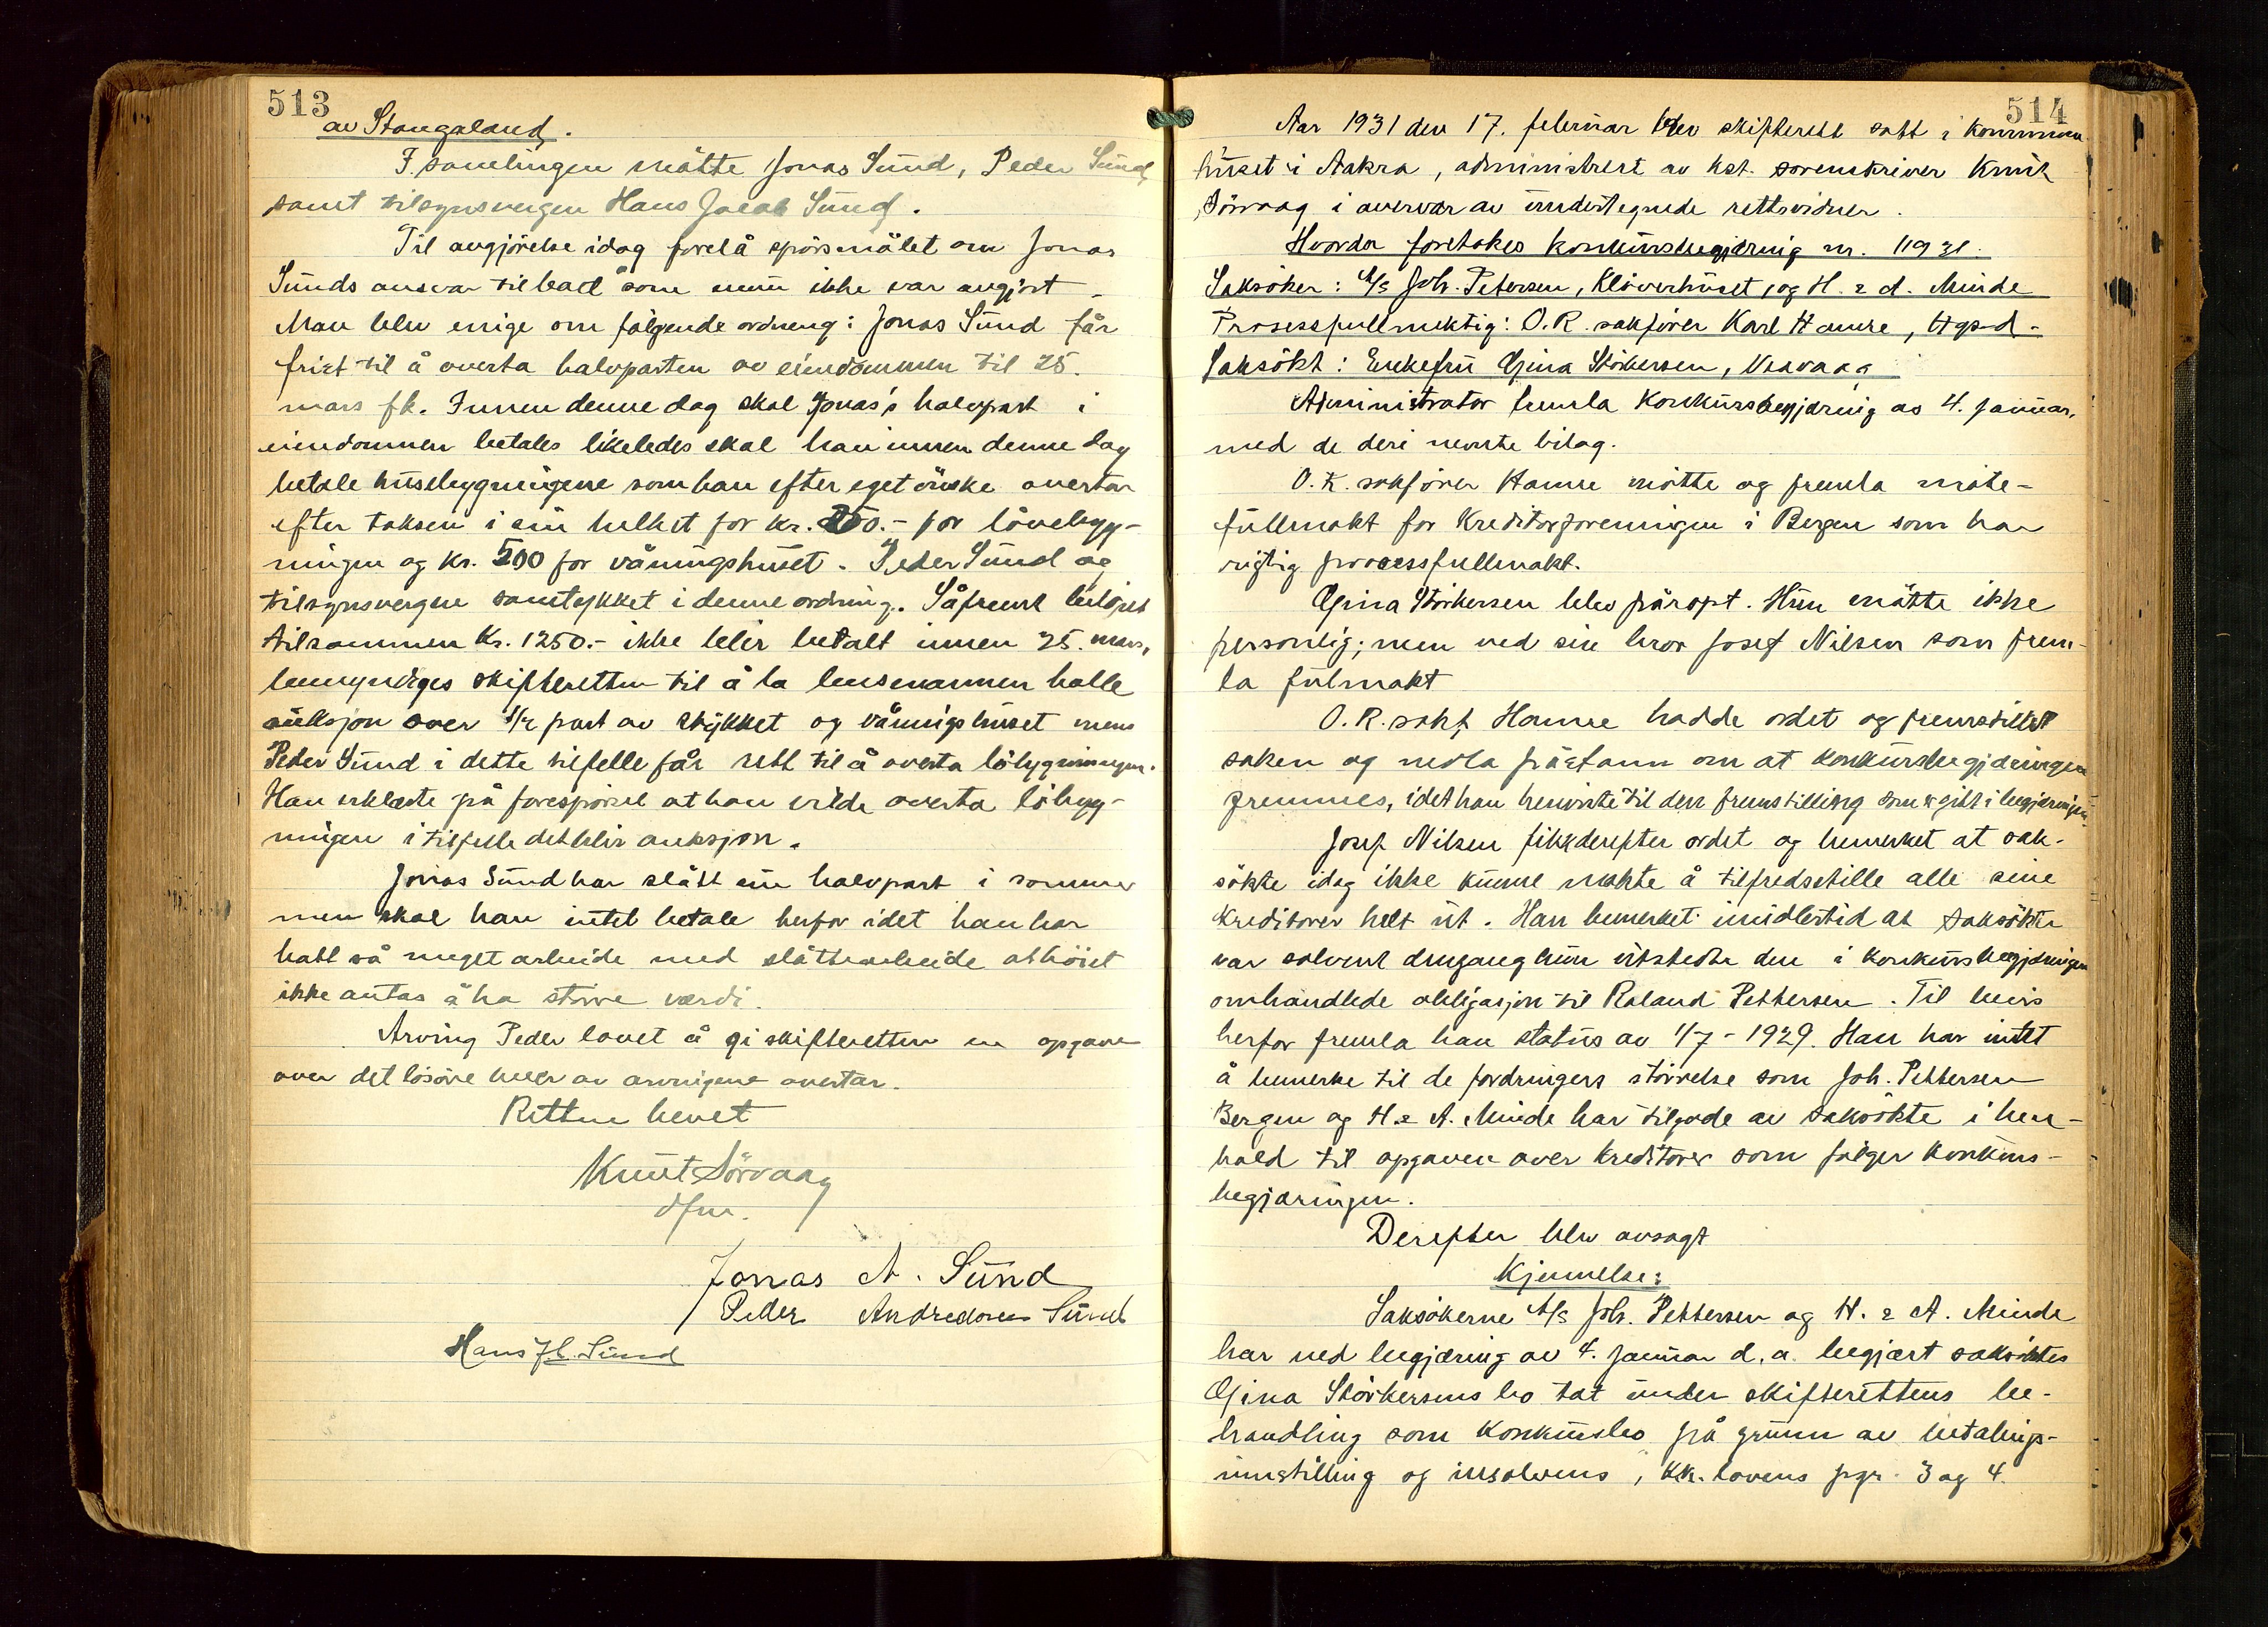 513
av Stangaland.
I samlingen møtte Jonas Sund, Peder Sund
samt tilsynsvergen Hans Jacob Sund.
Til avgjörelse idag forelå spörsmålet om Jonas
Sunds ansvar til boet som ennu ikke var avgjort.
Man blev enige om fölgende ordning: Jonas Sund får
frist til å overta halvparten av eiendommen til 25.
mars fk. Innen denne dag skal Jonas's halvpart i
eiendommen betales likeledes skal han innen denne dag
betale husebygningene som han efter eget önske overtar
efter taksten i sin helhet for kr. 250.- for lövebygg-
ningen og kr. 500 for våningshuset. Peder Sund og
tilsynsvergen samtykket i denne ordning. Såfremt belöpet
tilsammen kr. 1250.- ikke blir betalt innen 25. mars,
bemyndiges skifteretten til å la lensmannen holde
auksjon over 1/2 part av stykket og våningshuset mens
Peder Sund i dette tilfelle får rett til å overta löbygningen.
Han erklærte på forespörsel at han vilde overta löbyg-
ningen i tilfelle det blir auksjon.
Jonas Sund har slått sin halvpart i sommer
men skal han intet betale herfor idet han har
hatt så meget arbeide med slåttearbeide at höiet
ikke antas å ha större verdi.
Arving Peder lovet å gi skifteretten en opgave
over det lösöre hver av arvingene overtar.
Retten hevet
Knut Sörvaag
dfm.
Jonas A. Sund
Peder Andreassen Sund
Hans Jb. Sund
514
Aar 1931 den 17. februar blev skifterett satt i kommune-
huset i Aakra, administrert av kst. sorenskriver Knut
Sörvaag i overvær av undertegnede rettsvidner.
Hvorda foretokes konkursbegjæring nr. 1 1931.
Saksöker: A/s Joh. Petersen, Klöverhuset, og H. & A. Minde
Prosessfullmektig: O.R. sakförer Karl Hamre, Hgsd.
Saksökt: Enkefru Gina Störkersen, Veavaag
Administrator fremla konkursbegjæring av 4. januar,
med de deri nevnte bilag.
O.R. sakförer Hamre møtte og fremla møte-
fullmakt for Kreditorforeningen i Bergen som har
rigtig processfullmakt.
Gina Störkersen blev påropt. Hun møtte ikke
personlig; men ved sin bror Josef Nilsen som frem-
la fulmakt
O.R. sakf. Hamre hadde ordet og fremstillet
saken og nedla påstann om at konkursbegjæringen
fremmes, idet han henviste til den fremstilling som er gitt i begjæringen.
Josef Nilsen fikk derefter ordet og bemerket at sak-
sökte idag ikke kunne makte å tilfredsstille alle sine
kreditorer helt ut. Han bemerket imidlertid at saksökte
var solvent dengang hun utstedte den i konkursbegjæringen
omhandlede obligasjon til Roland Pettersen. Til bevis
herfor fremla han status av 1/7 - 1929. Han har intet
å bemerke til de fordringers störrelse som Joh. Pettersen
Bergen og H. & A. Minde har tilgode av saksökte i hen-
hold til opgaven over kreditorer som fölger konkurs-
begjæringen.
Derefter blev avsagt
Kjennelse:
Saksökerne A/s Joh. Pettersen og H. & A. Minde
har ved begjæring av 4. januar d.a. begjært saksöktes
Gina Störkersens bo tat under skifterettens be-
handling som konkursbo på grunn av betalings-
innstilling og insolvens, kk. lovens pgr. 3 og 4.